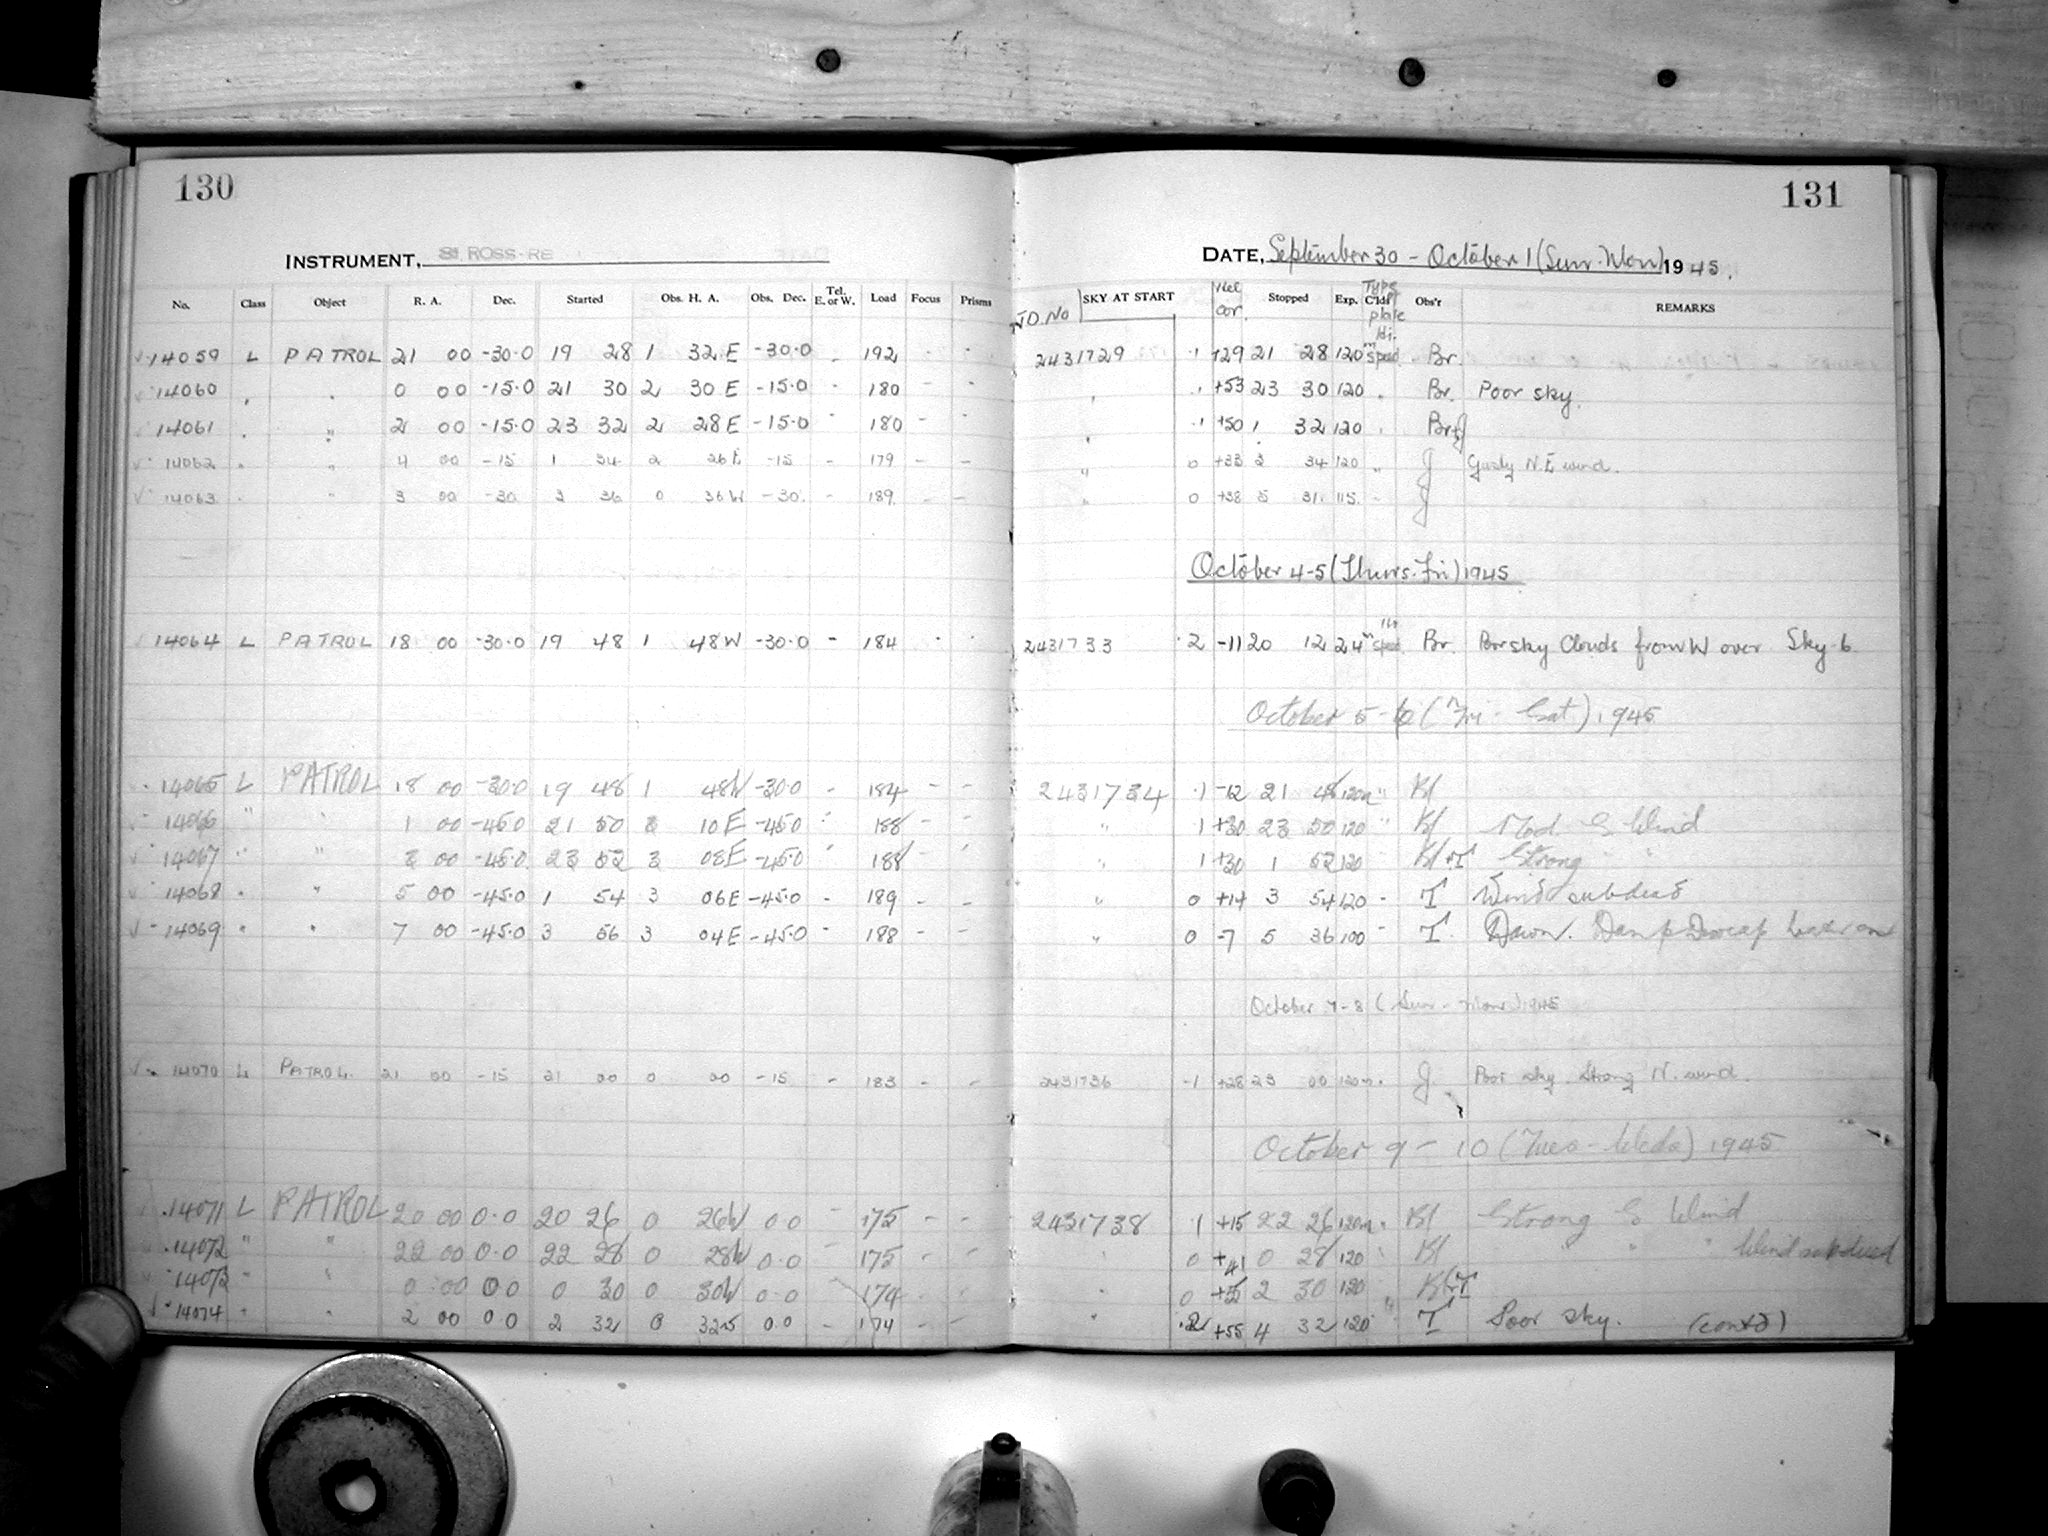 130
131
INSTRUMENT, ROSS-RE
DATE, September 30 - October 1 (Sun-Mon) 1945.
No. Class Object R. A. Dec. Started Obs. H. A. Obs. Dec. Tel. E. or W. Load Focus Prisms JD No SKY AT START cor. Stopped Exp. Type Clds plate Obs'r REMARKS
14059 L PATROL 21 00 -30.0 19 28 1 32 E -30.0 - 192 - - 2431729 .1 +29 21 28 120m Hi. speed Br.
14060 " " 0 00 -15.0 21 30 2 30 E -15.0 - 180 - - " .1 +53 23 30 120 " Br. Poor sky.
14061 " " 2 00 -15.0 23 32 2 28 E -15.0 - 180 - - " .1 +50 1 32 120 " Br+J
14062 " " 4 00 -15 1 34 2 26 E -15 - 179 - - " 0 +33 3 34 120 " J Gusty N.E wind.
14063 " " 3 00 -30 3 36 0 36 W -30 - 189 - - " 0 +38 5 31 115 " J
October 4-5 (Thurs-Fri) 1945
14064 L PATROL 18 00 -30.0 19 48 1 48 W -30.0 - 184 - - 2431733 .2 -11 20 12 24m speed Br. Poor sky Clouds from W over Sky .6
October 5-6 (Fri - Sat.) 1945
14065 L PATROL 18 00 -30.0 19 48 1 48 W -30.0 - 184 - - 2431734 .1 -12 21 48 120m "
14066 " " 1 00 -45.0 21 50 3 10 E -45.0 - 188 - - " 1 +30 23 50 120 " Mod. S Wind
14067 " " 3 00 -45.0 23 52 3 08 E -45.0 - 188 - - " 1 +30 1 52 120 Strong " "
14068 " " 5 00 -45.0 1 54 3 06 E -45.0 - 189 - - " 0 +14 3 54 120 - T Wind subdued
14069 " " 7 00 -45.0 3 56 3 04 E -45.0 - 188 - - " 0 -7 5 36 100 - T. Dawn. Damp Dewcap heater on
October 7-8 (Sun - Mon) 1945
14070 L PATROL 21 00 -15 21 00 0 00 -15 - 183 - - 2431736 .1 +28 23 00 120m J Poor sky. Strong N. wind.
October 9 - 10 (Tues - Weds) 1945
14071 L PATROL 20 00 0.0 20 26 0 26 W 0.0 - 175 - - 2431738 .1 +15 22 26 120m " Strong S Wind
14072 " " 22 00 0.0 22 28 0 28 W 0.0 - 175 - - " 0 +41 0 28 120 " " " Wind subdued
14073 " " 0 00 0.0 0 30 0 30 W 0.0 - 174 - - " 0 2 30 120
14074 " " 2 00 0.0 2 32 0 32 0.0 - 174 - - " .2 +55 4 32 120 " T Poor sky. (contd)